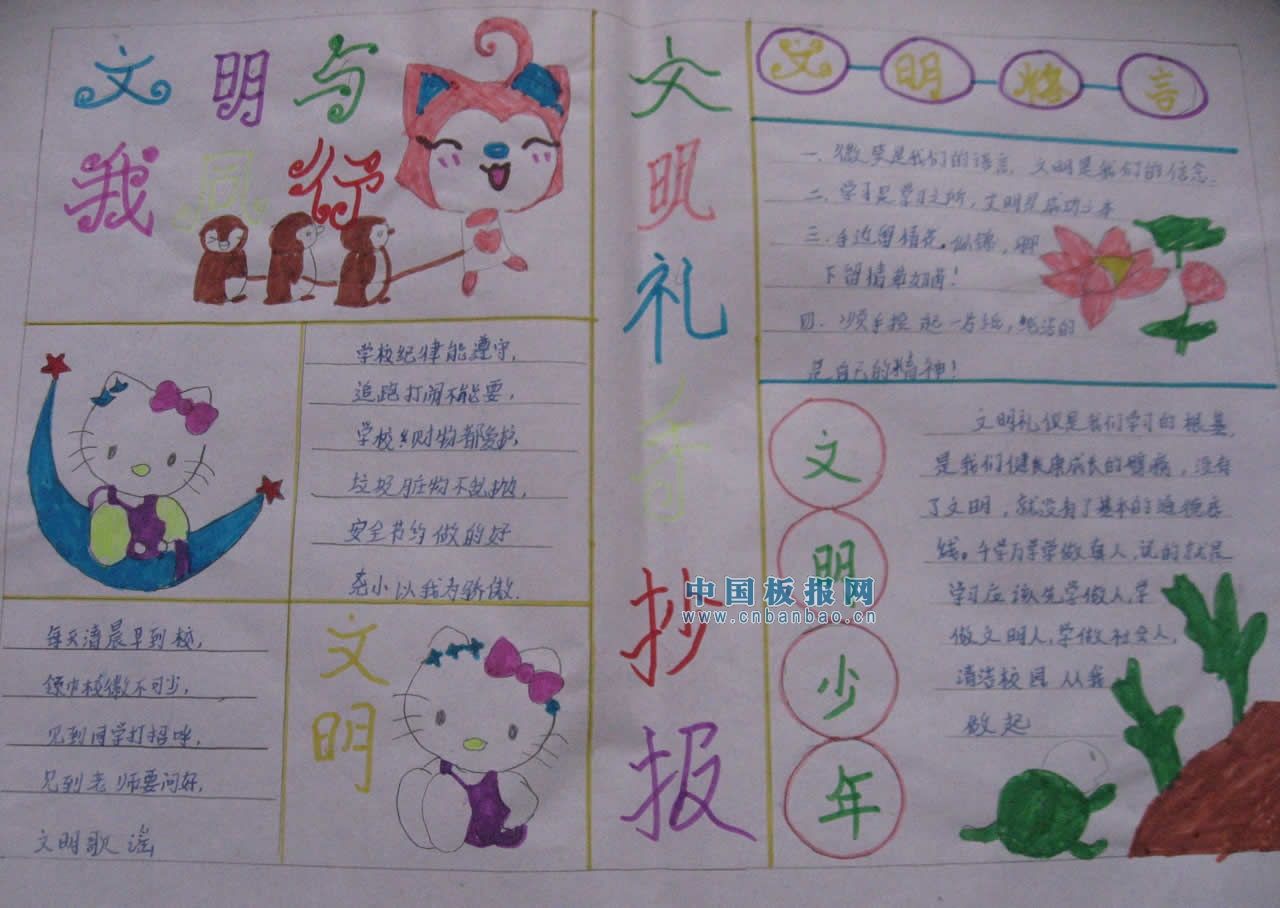 文明与
我同行
学校纪律能遵守,
追跑打闹不能要,
学校的财物都爱护,
垃圾脏物不乱抛,
安全节约做的好
从小以我为骄傲.
每天清晨早到校,
领巾校徽不可少,
见到同学打招呼,
见到老师要问好,
文明歌谣
文明
文明礼
手抄报
文明格言
一. 微笑是我们的语言, 文明是我们的信念.
二. 学习是学习之所, 文明是成功之本
三. 手边留情花似锦, 脚
下留情草如茵!
四. 顺手捡起一片纸, 纯洁的
是自己的精神!
文明少年
文明礼仪是我们学习的根基,
是我们健康成长的臂膀, 没有
了文明, 就没有了基本的道德底
线。千学万学学做真人, 说的就是
学习应该先学做人, 学
做文明人, 学做社会人,
清洁校园 从我
做起
中国板报网
www.cnbanbao.cn